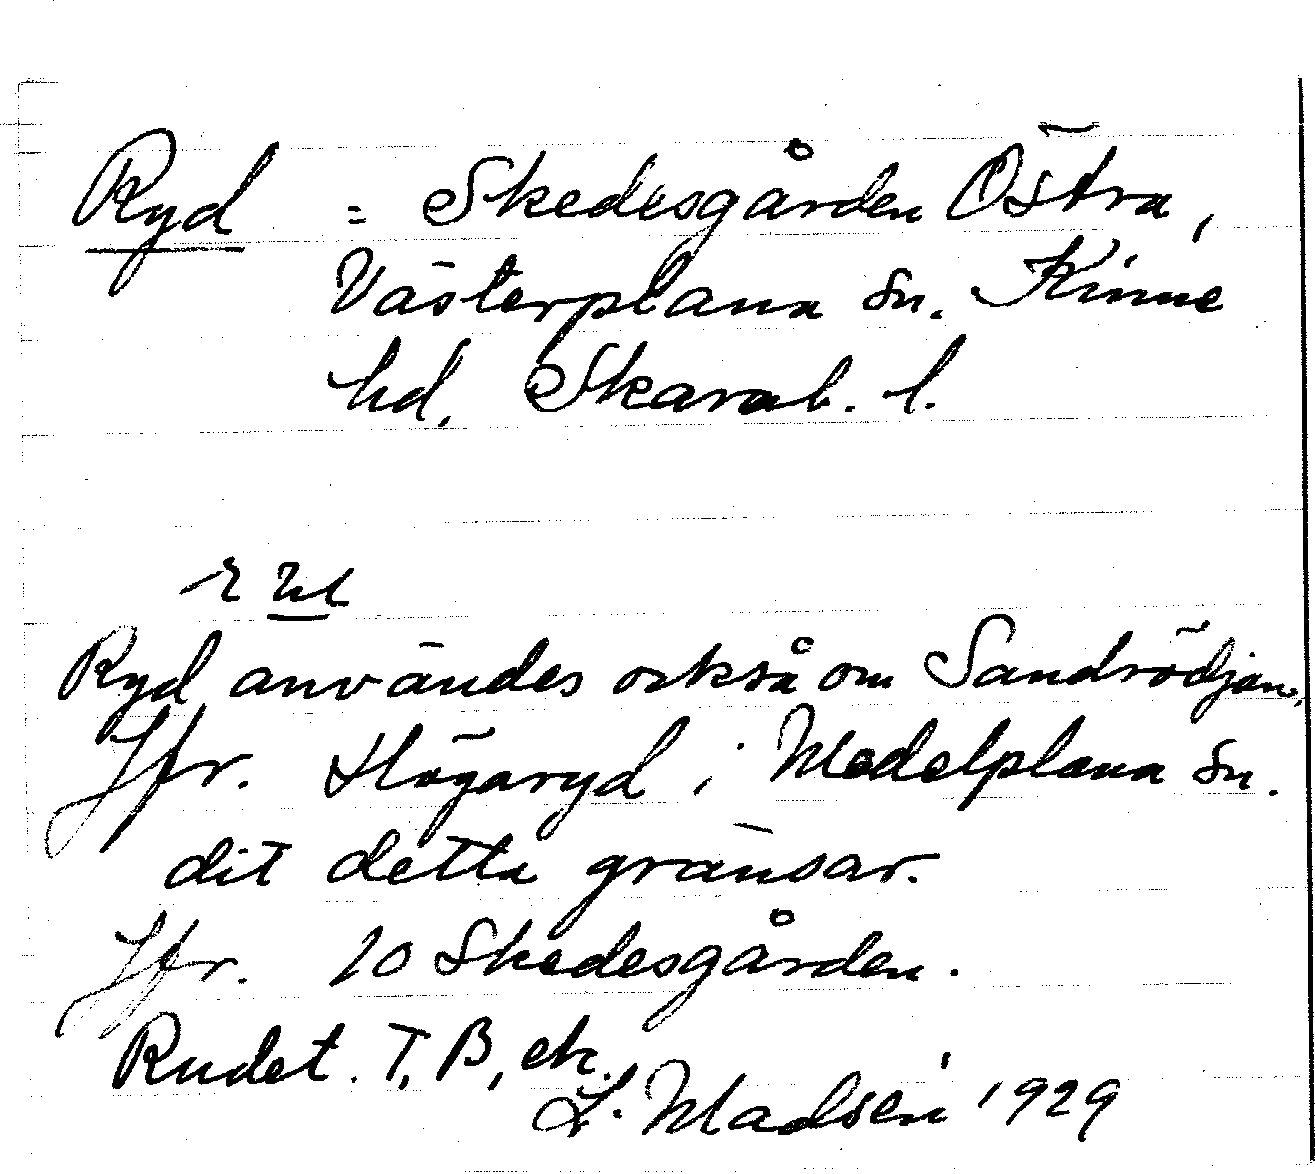 Ryd = Skedesgården Östra,
Västerplana sn. Kinne
hd. Skarab. l.
Ryd användes också om Sandrödjan.
Jfr. Högaryd i Medelplana sn.
dit detta gränsar.
Jfr. 20 Skedesgården.
Rudet. T, B, ek.
L. Madsén 1929